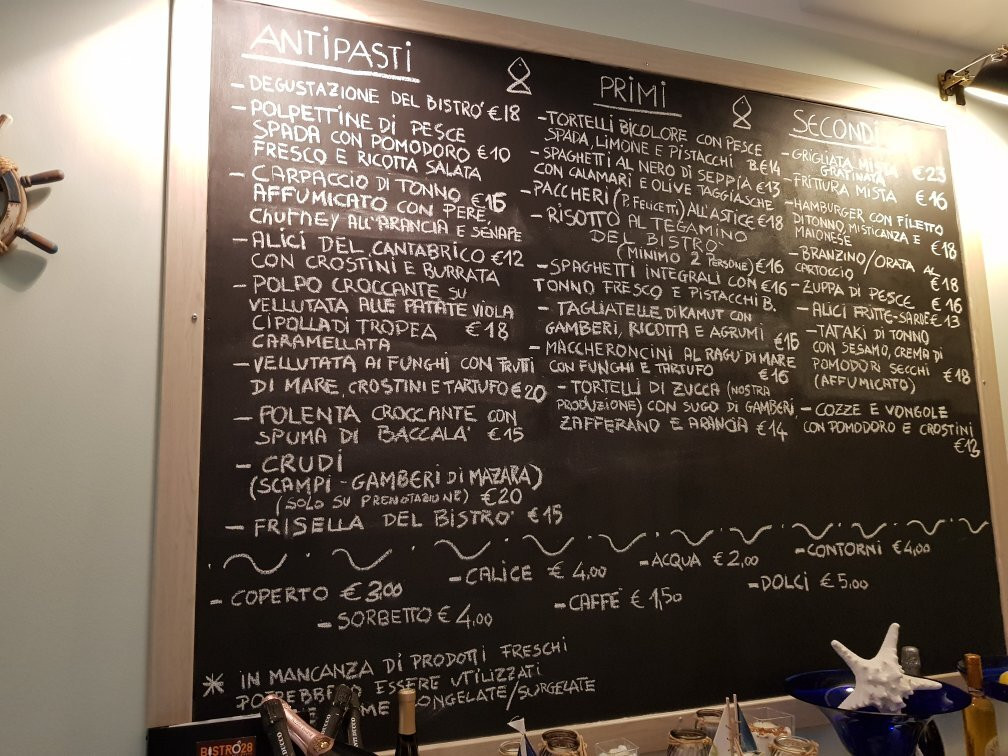 ANTIPASTI
- DEGUSTAZIONE DEL BISTRO' €18
- POLPETTINE DI PESCE
SPADA CON POMODORO €10
FRESCO E RICOTTA SALATA
- CARPACCIO DI TONNO €16
AFFUMICATO CON PERE,
ChUTNEY ALL'ARANCIA E SENAPE
- ALICI DEL CANTABRICO €12
CON CROSTINI E BURRATA
- POLPO CROCCANTE SU
VELLUTATA ALLE PATATE VIOLA
CIPOLLA DI TROPEA €18
CARAMELLATA
- VELLUTATA AI FUNGHI CON FRUTTI
DI MARE, CROSTINI E TARTUFO €20
- POLENTA CROCCANTE CON
SPUMA DI BACCALA' €15
- CRUDI
(SCAMPI - GAMBERI DI MAZARA)
(SOLO SU PRENOTAZIONE) €20
- FRISELLA DEL BISTRO' €15
PRIMI
- TORTELLI BICOLORE CON PESCE
SPADA, LIMONE E PISTACCHI B.€14
- SPAGHETTI AL NERO DI SEPPIA €13
CON CALAMARI E OLIVE TAGGIASCHE
- PACCHERI (P. FELICETTI) ALL'ASTICE €18
- RISOTTO AL TEGAMINO
DEL BISTRO'
(MINIMO 2 PERSONE) €16
- SPAGHETTI INTEGRALI CON €16
TONNO FRESCO E PISTACCHI B.
- TAGLIATELLE DI KAMUT CON
GAMBERI, RICOTTA E AGRUMI €16
- MACCHERONCINI AL RAGU' DI MARE
CON FUNGHI E TARTUFO €16
- TORTELLI DI ZUCCA (NOSTRA
PRODUZIONE) CON SUGO DI GAMBERI,
ZAFFERANO E ARANCIA €14
SECONDI
- GRIGLIATA MISTA €23
GRATINATA
- FRITTURA MISTA €16
- HAMBURGER CON FILETTO
DI TONNO, MISTICANZA E
MAIONESE €18
- BRANZINO/ORATA AL
CARTOCCIO €18
- ZUPPA DI PESCE €16
- ALICI FRITTE-SARDE €13
- TATAKI DI TONNO
CON SESAMO, CREMA DI
POMODORI SECCHI €18
(AFFUMICATO)
- COZZE E VONGOLE
CON POMODORO E CROSTINI
€13
- COPERTO €3,00
- CALICE €4,00
- ACQUA €2,00
- CONTORNI €4,00
- SORBETTO €4,00
- CAFFE' €1,50
- DOLCI €5,00
* IN MANCANZA DI PRODOTTI FRESCHI
POTREBBERO ESSERE UTILIZZATI
CONGELATE/SURGELATE
BISTRÒ28